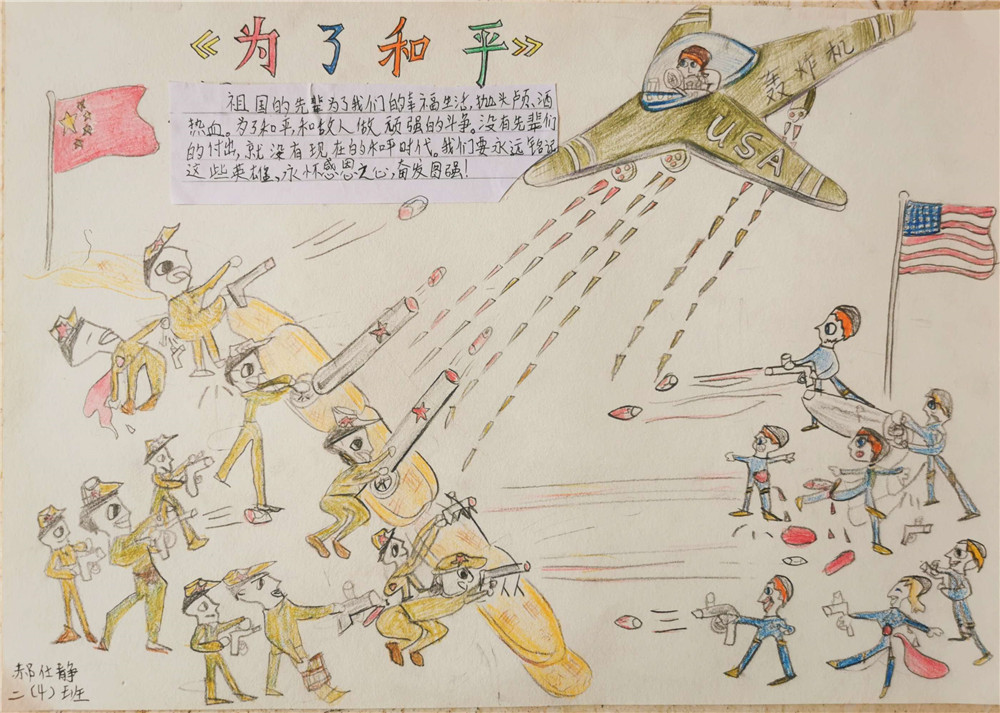 《为了和平》
祖国的先辈为了我们的幸福生活,抛头颅、洒
热血。为了和平,和敌人做顽强的斗争。没有先辈们
的付出,就没有现在的和平时代。我们要永远铭记
这些英雄,永怀感恩之心,奋发图强!
轰炸机
USA
郝仕静
二(4)班